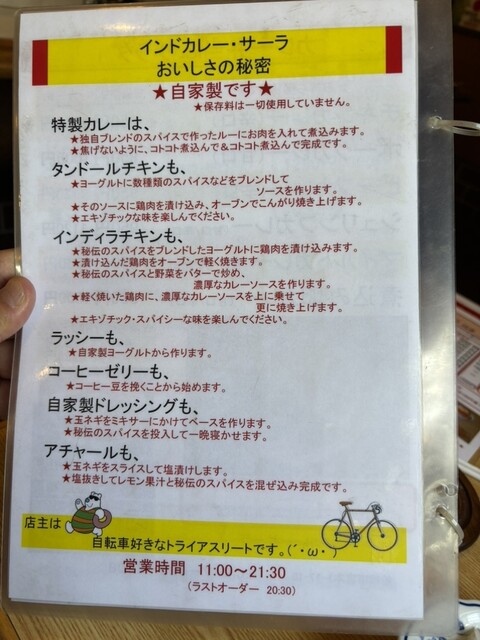 インドカレー・サーラ
おいしさの秘密
★自家製です★
★保存料は一切使用していません。
特製カレーは、
★独自ブレンドのスパイスで作ったルーにお肉を入れて煮込みます。
★焦げないように、コトコト煮込んで＆コトコト煮込んで完成です。
タンドールチキンも、
★ヨーグルトに数種類のスパイスなどをブレンドして
ソースを作ります。
★そのソースに鶏肉を漬け込み、オーブンでこんがり焼き上げます。
★エキゾチックな味を楽しんでください。
インディラチキンも、
★秘伝のスパイスをブレンドしたヨーグルトに鶏肉を漬け込みます。
★漬け込んだ鶏肉をオーブンで軽く焼きます。
★秘伝のスパイスと野菜をバターで炒め、
濃厚なカレーソースを作ります。
★軽く焼いた鶏肉に、濃厚なカレーソースを上に乗せて
更に焼き上げます。
★エキゾチック・スパイシーな味を楽しんでください。
ラッシーも、
★自家製ヨーグルトから作ります。
コーヒーゼリーも、
★コーヒー豆を挽くことから始めます。
自家製ドレッシングも、
★玉ネギをミキサーにかけてベースを作ります。
★秘伝のスパイスを投入して一晩寝かせます。
アチャールも、
★玉ネギをスライスして塩漬けします。
★塩抜きしてレモン果汁と秘伝のスパイスを混ぜ込み完成です。
店主は
自転車好きなトライアスリートです。(´・ω・`)
営業時間 11:00～21:30
（ラストオーダー 20:30)